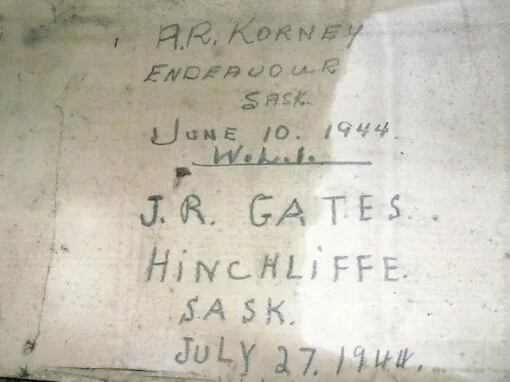 A.R. KORNEY
ENDEAVOUR
SASK.
JUNE 10. 1944.
J.R. GATES.
HiNCHLiFFE.
SASK.
JULY 27. 1944.